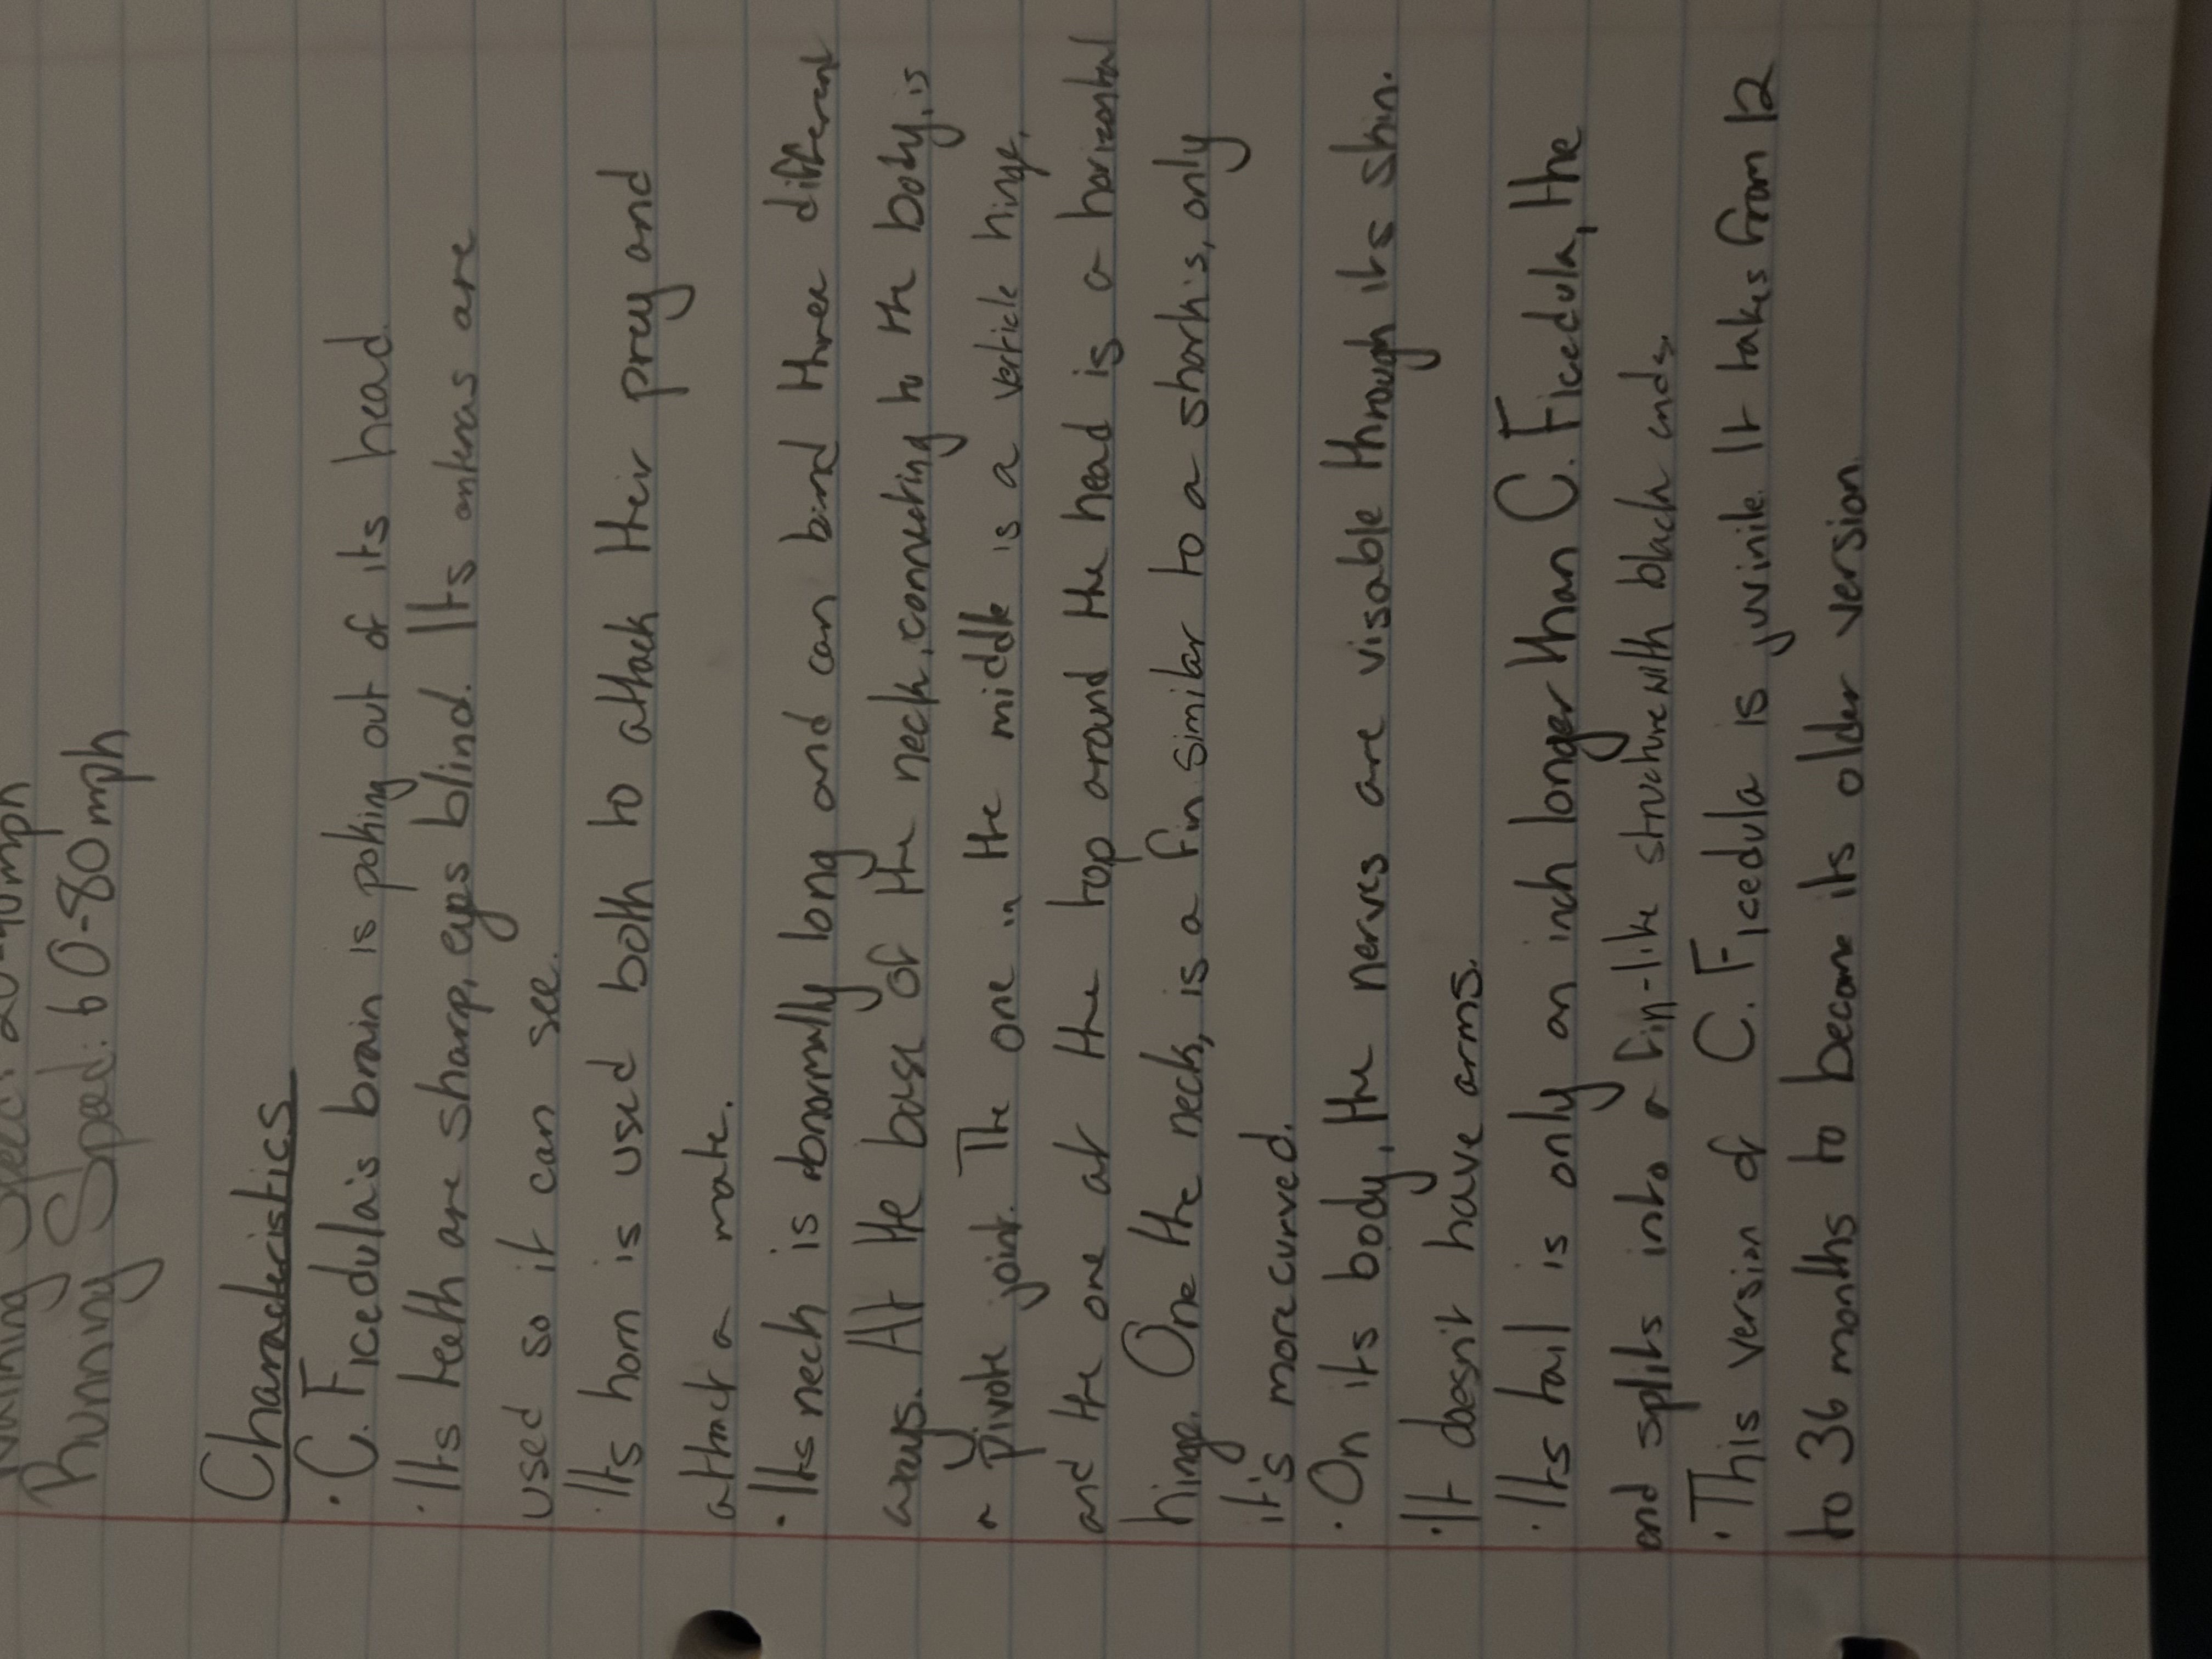 Speed: 20-40mph
Running Speed: 60-80mph
Characteristics
· C. Ficedula's brain is poking out of its head.
· Its teeth are sharp, eyes blind. Its antenas are
used so it can see.
· Its horn is used both to attack their prey and
attract a mate.
· Its neck is abnormally long and can bend three different
ways. At the base of the neck, connecting to the body, is
a pivote joint. The one in the middle is a verticle hinge,
and the one at the top around the head is a horizontal
hinge. One the neck, is a fin similar to a shark's, only
it's more curved.
· On its body, the nerves are visable through its skin.
· It doesn't have arms.
· Its tail is only an inch longer than C. Ficedula, the
end splits into a fin-like structure with black ends.
· This version of C. Ficedula is juvinile. It takes from 12
to 36 months to become its older version.